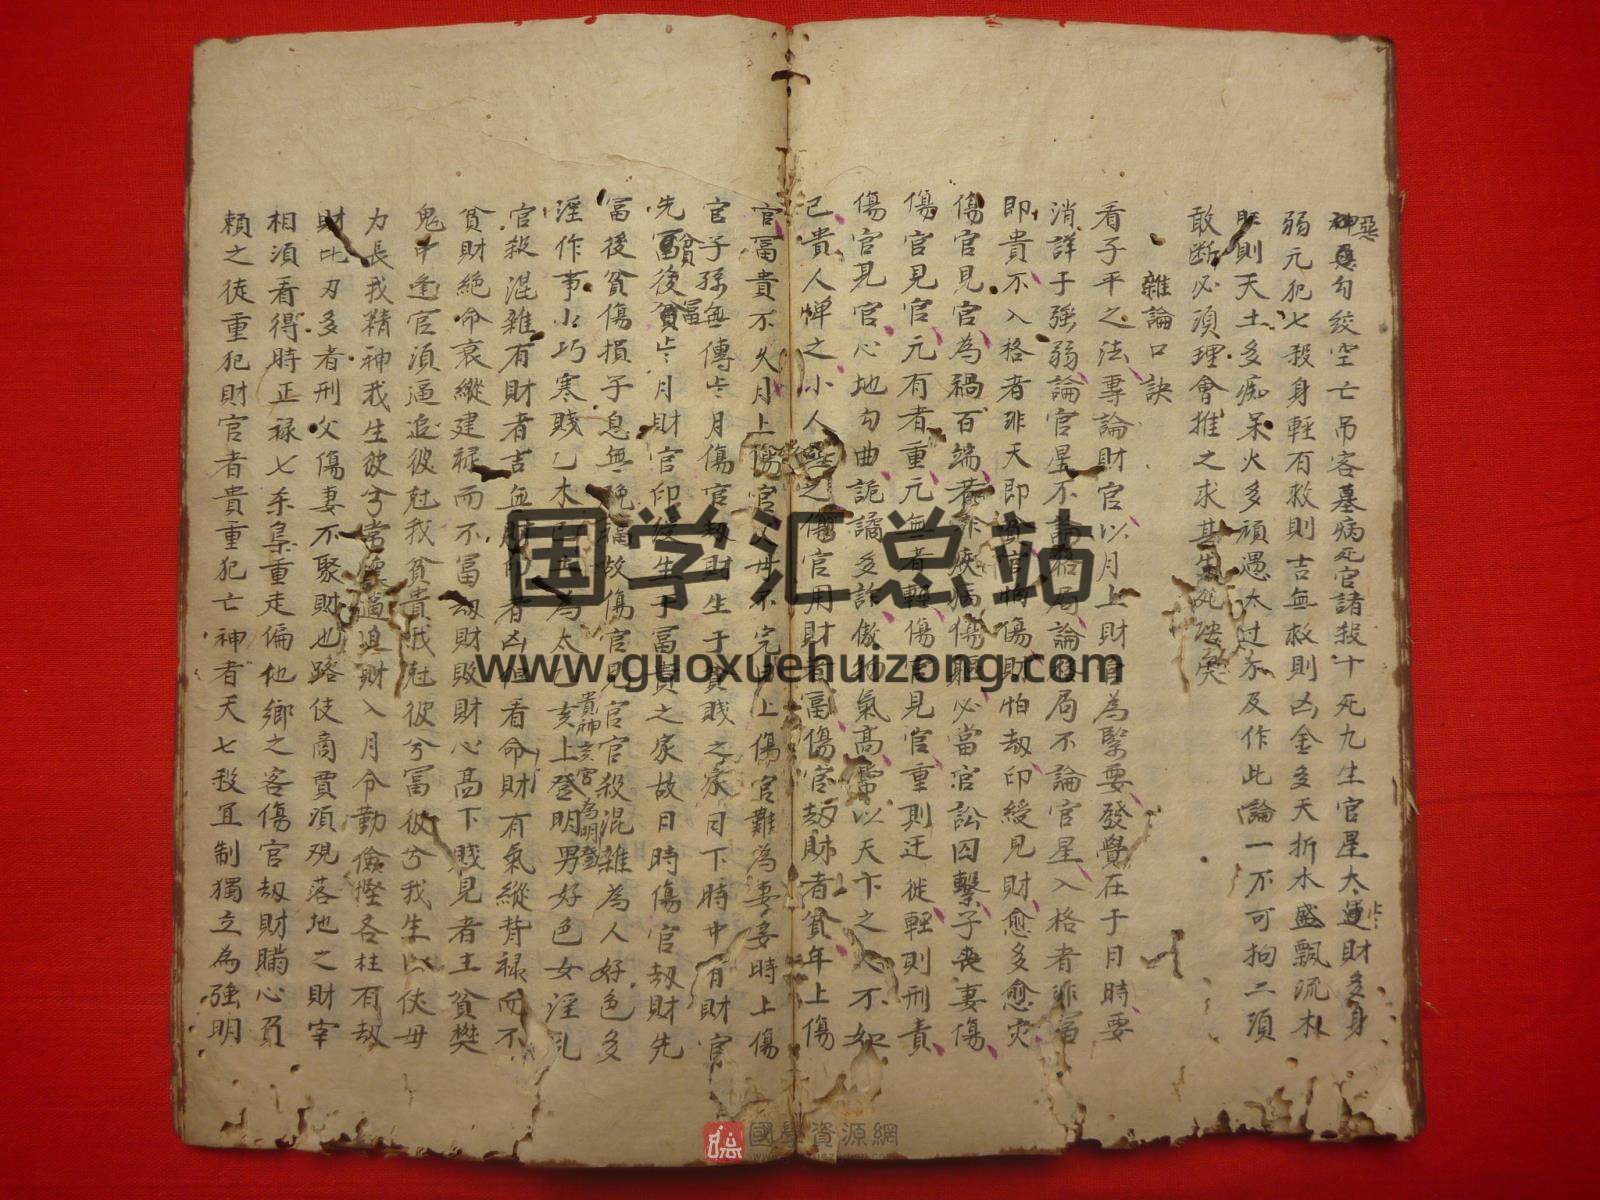 神惡勾絞空亡吊客墓病死官諸殺十死九生官星大運財多身
弱元犯七殺身輕有救則吉無救則凶金多夭折木盛飄流木
旺則夭土多痴呆火多頑愚太过不及作此論一不可拘二須
敢斷必須理會推之求其生死決矣
雜論口訣
看子平之法專論財官以月上財官為緊要發覺在于日時要
消詳于強弱論官星不論格局論格局不論官星入格者非富
即貴不入格者非夭即貧官怕傷財怕劫印綬見財愈多愈灾
傷官見官為禍百端若非疾病傷軀必當官訟囚繫子喪妻傷
傷官見官元有者重元無者輕傷官見官重則迁徙輕則刑責
傷官見官心地勾曲詭譎多詐傲物氣高常以天下之人不如
己貴人惮之小人之傷官用財者富傷官劫財者貧年上傷
官富貴不久月上傷官父母不完日上傷官難為妻妾時上傷
官子孫無傳歲月傷官劫財生于貧賤之家日下時中有財官
先貧後富歲月財官印綬生于富貴之家故日時傷官劫財先
富後貧傷損子息無晚福故傷官見官官殺混雜為人好色多
淫作事小巧寒賤乙木為太乙亥上登明男好色女淫乱
貴神亥宮為明登
官殺混雜有財者吉無財者凶但看命財有氣縱背禄而不
貧財絕命衰縱建禄而不富劫財敗財心高下賤見者主貧樊
鬼中逢官須逼迫彼尅我貧貴我尅彼兮富彼兮我生以伏母
力長我精神我生彼兮常懷逼迫財入月令勤儉慳吝柱有劫
財比刃多者刑父傷妻不聚財也路伎商賈須現落地之財宰
相須看得時正禄七杀梟重走偏他鄉之客傷官劫財瞞心負
賴之徒重犯財官者貴重犯亡神者夭七殺宜制獨立為強明
国学汇总站
www.guoxuehuizong.com
國學資源網